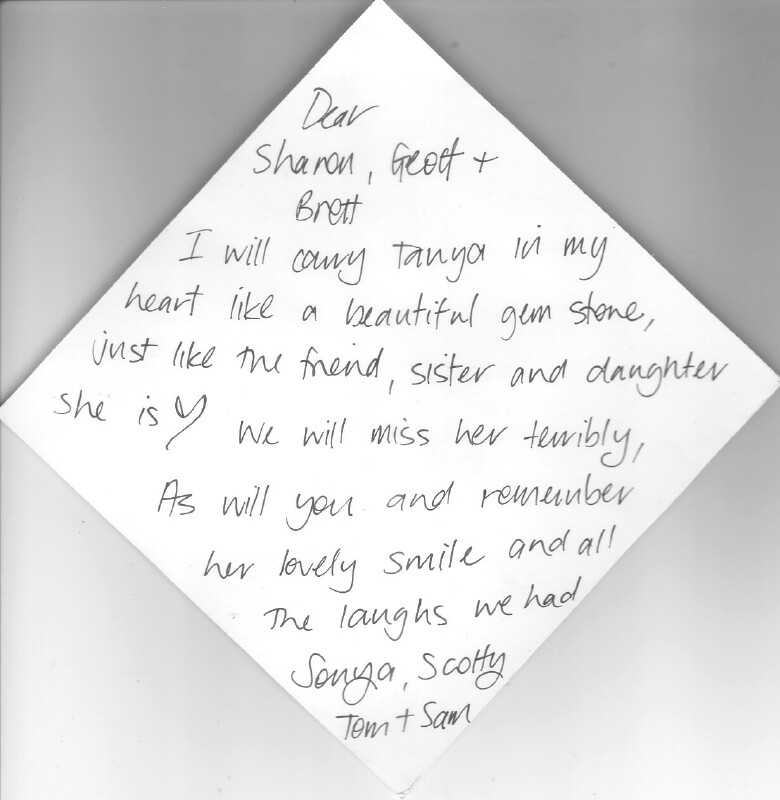 Dear
Sharon, Geoff +
Brett
I will carry Tanya in my
heart like a beautiful gem stone,
just like the friend, sister and daughter
she is ♡ We will miss her terribly,
As will you and remember
her lovely smile and all
the laughs we had
Sonya, Scotty
Tom + Sam